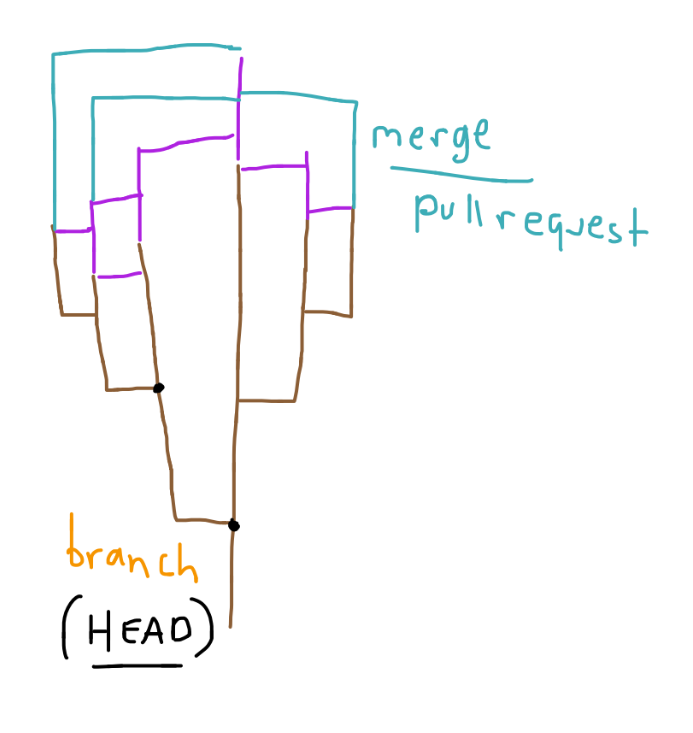 merge
pull request
branch
(HEAD)